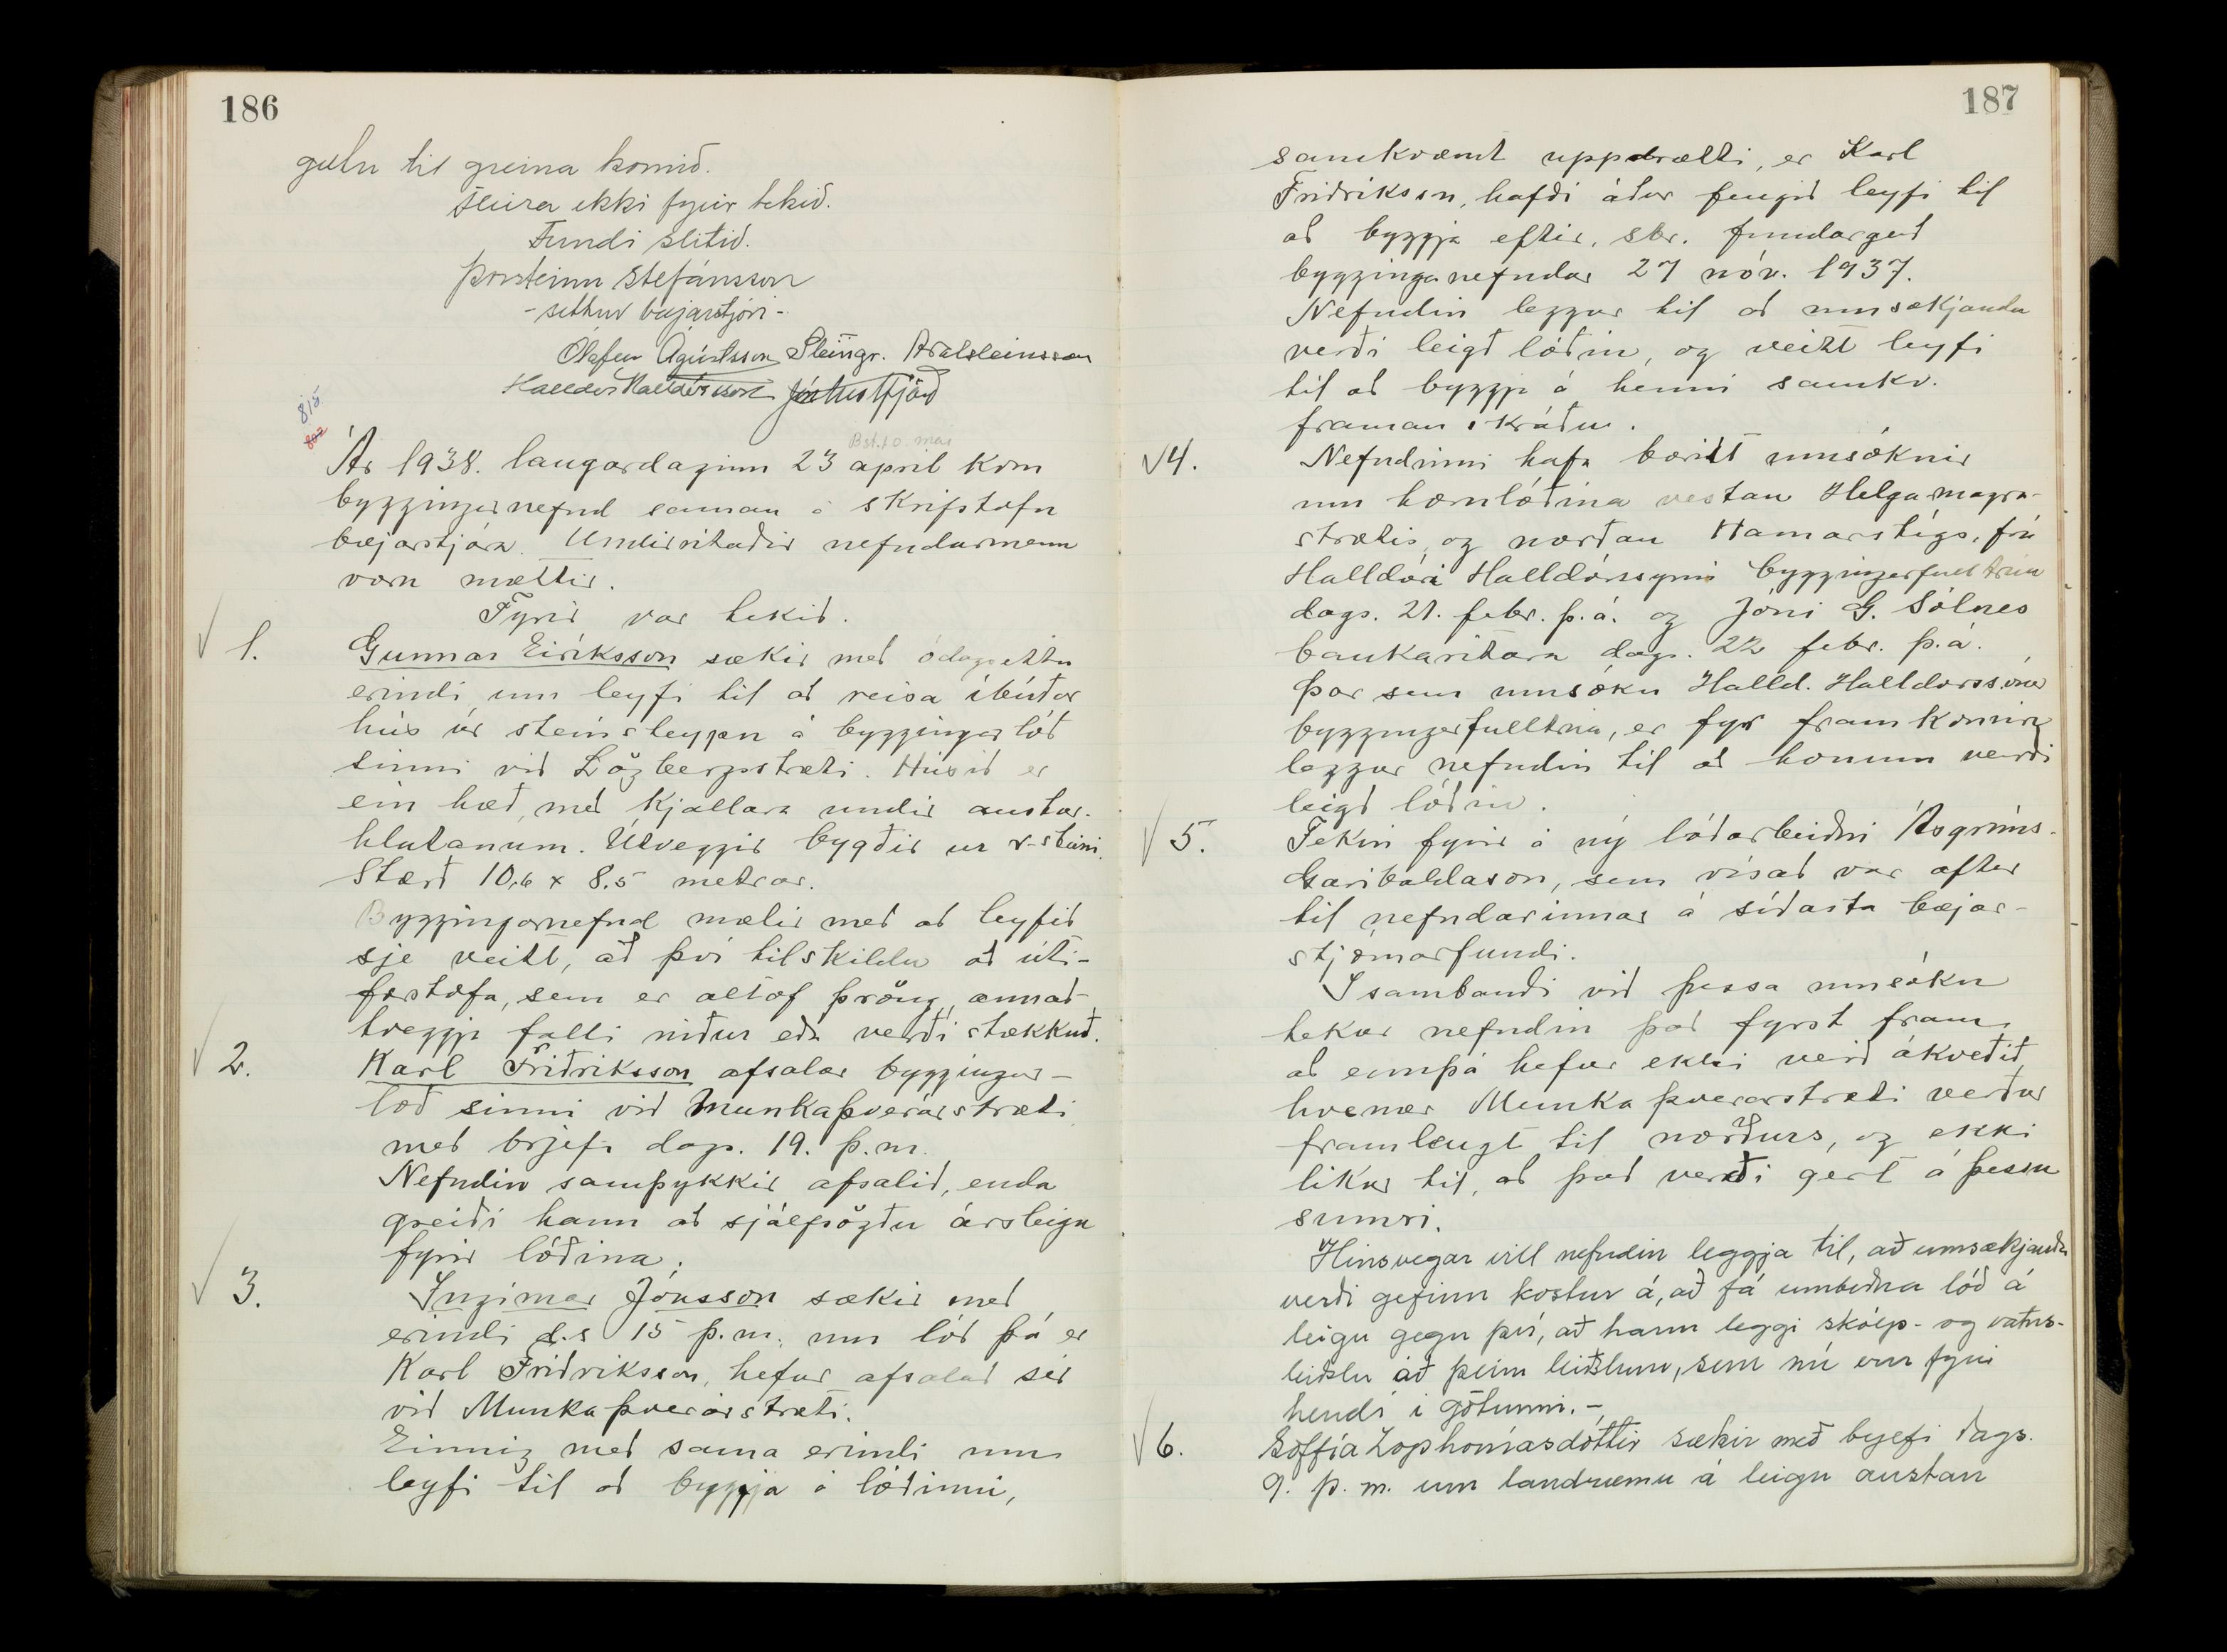 186
gætu til greina komið.
Fleira ekki fyrir tekið.
Fundi slitið.
Þorsteinn Stefánsson
- settur bæjarstjóri -
Ólafur Ágústsson Steingr. Aðalsteinsson
Halldór Halldórsson
815
802
Bst. 10. maí
Ár 1938. laugardaginn 23 apríl kom
byggingarnefnd saman á skrifstofu
bæjarstjóra. Undirritaðir nefndarmenn
voru mættir.
Fyrir var tekið.
√ 1. Gunnar Eiríksson sækir með ódagsettu
erindi um leyfi til að reisa íbúðar
hús úr steinsteypu á byggingarlóð
sinni við Lögbergsstræti. Húsið er
ein hæð, með kjallara undir austur-
hlutanum. Útveggir bygðir úr r-steini.
Stærð 10,6 x 8,5 metrar.
Byggingarnefnd mælir með að leyfið
sje veitt, að því tilskildu að úti-
forstofa, sem er altof þröng, annað-
tveggja falli niður eða verði stækkuð.
√ 2. Karl Friðriksson afsalar byggingar-
lóð sinni við Munkaþverárstræti
með brjefi dags. 19. þ.m.
Nefndin samþykkir afsalið, enda
greiði hann að sjálfsögðu ársleigu
fyrir lóðina.
√ 3. Ingimar Jónsson sækir með
erindi d.s 15 þ.m. um lóð þá er
Karl Friðriksson, hefur afsalað sér
við Munkaþverárstræti.
Einnig með sama erindi um
leyfi til að byggja á lóðinni,
187
samkvæmt uppdrætti, er Karl
Friðriksson, hafði áður fengið leyfi til
að byggja eftir, sbr. fundargerð
bygginganefndar 27 nóv. 1937.
Nefndin leggur til að umsækjanda
verði leigð lóðin, og veitt leyfi
til að byggja á henni samkv.
framan skráðu.
√4. Nefndinni hafa borist umsóknir
um hornlóðina vestan Helga-magra-
strætis, og norðan Hamarstígs, frá
Halldóri Halldórssyni byggingarfulltrúa
dags. 21. febr. þ.á. og Jóni G. Sólnes
bankaritara dags. 22 febr. þ.á.
Þar sem umsókn Halld. Halldórssonar
byggingarfulltrúa, er fyr framkomin,
leggur nefndin til að honum verði
leigð lóðin.
√ 5. Tekin fyrir á ný lóðarbeiðni Ásgríms-
Garibaldason, sem vísað var aftur
til nefndarinnar á síðasta bæjar-
stjórnarfundi.
I sambandi við þessa umsókn
tekur nefndin það fyrst fram,
að ennþá hefur ekki verið ákveðið,
hvenær Munkaþverárstræti verður
framlengt til norðurs, og ekki
líkur til, að það verði gert á þessu
sumri.
Hinsvegar vill nefndin leggja til, að umsækjanda
verði gefinn kostur á, að fá umbeðna lóð á
leigu gegn því, að hann leggi skólp- og vatns-
leiðslu að þeim leiðslum, sem nú eru fyrir
hendi í götunni. -
√ 6. Soffía Zophoníasdóttir sækir með brjefi dags.
9. þ. m. um landræmu á leigu austan